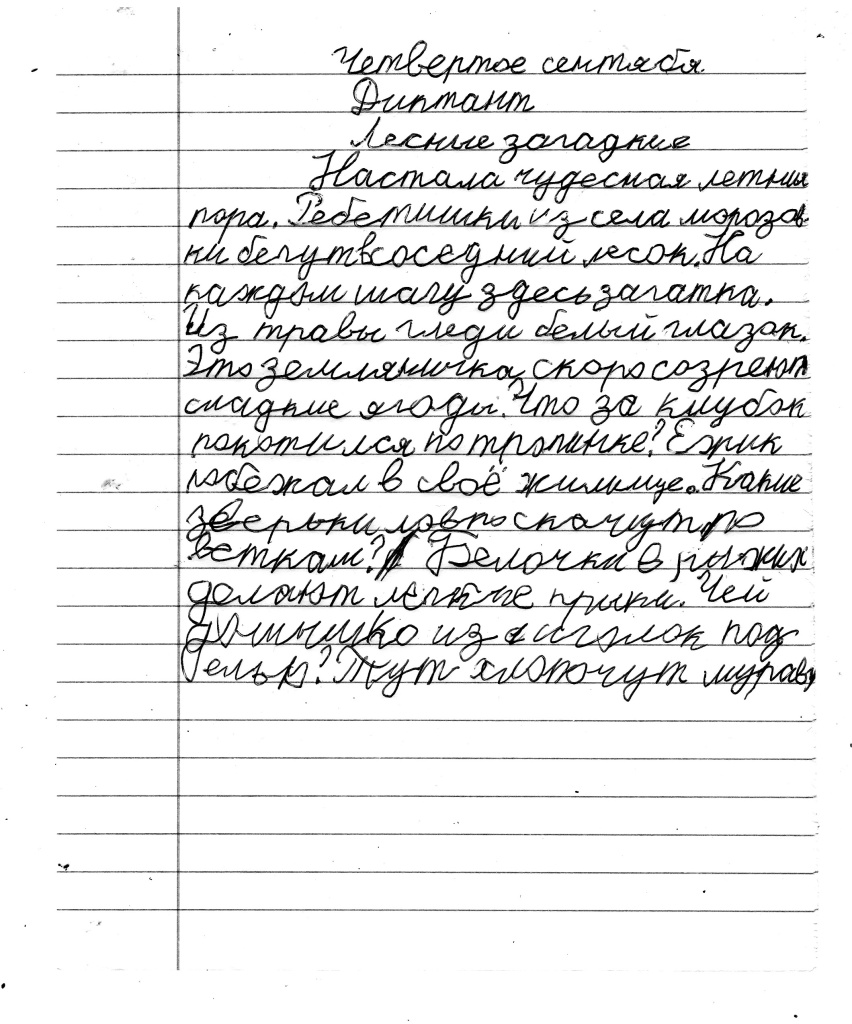 Четвертое сентябя.
Диктант
Лесные загадкие
Настала чудесная летния
пора. Ребетишки из села морозов
ки бегут всоседний лесок. На
каждом шагу здесь загатка.
Из травы гледи белый глазок.
Это земляничка скоро созреют
сладкие ягоды. Что за клубок
покотился по тропинке? Ежик
побежал в своё жилище. Какие
зверьки ловко скачут по
веткам? Белочки в рыжих
делают легкие прыки. Чей
домишко из иголок под
елью? Тут хлопочут муравь